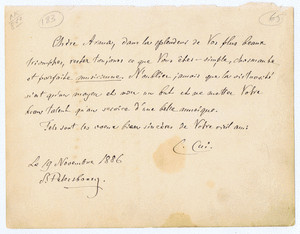 Chère Amie, dans les splendeurs de Vos plus beaux
triomphes, restez toujours ce que Vous êtes – simple, charmante
et parfaite musicienne. N'oubliez jamais que la virtuosité
n'est qu'un moyen et non un but et ne mettez Votre
beau talent qu'au service d'une belle musique.
Tels sont les voeux bien sincères de Votre vieil ami
C. Cui.
Le 19 Novembre 1886
St Petersbourg